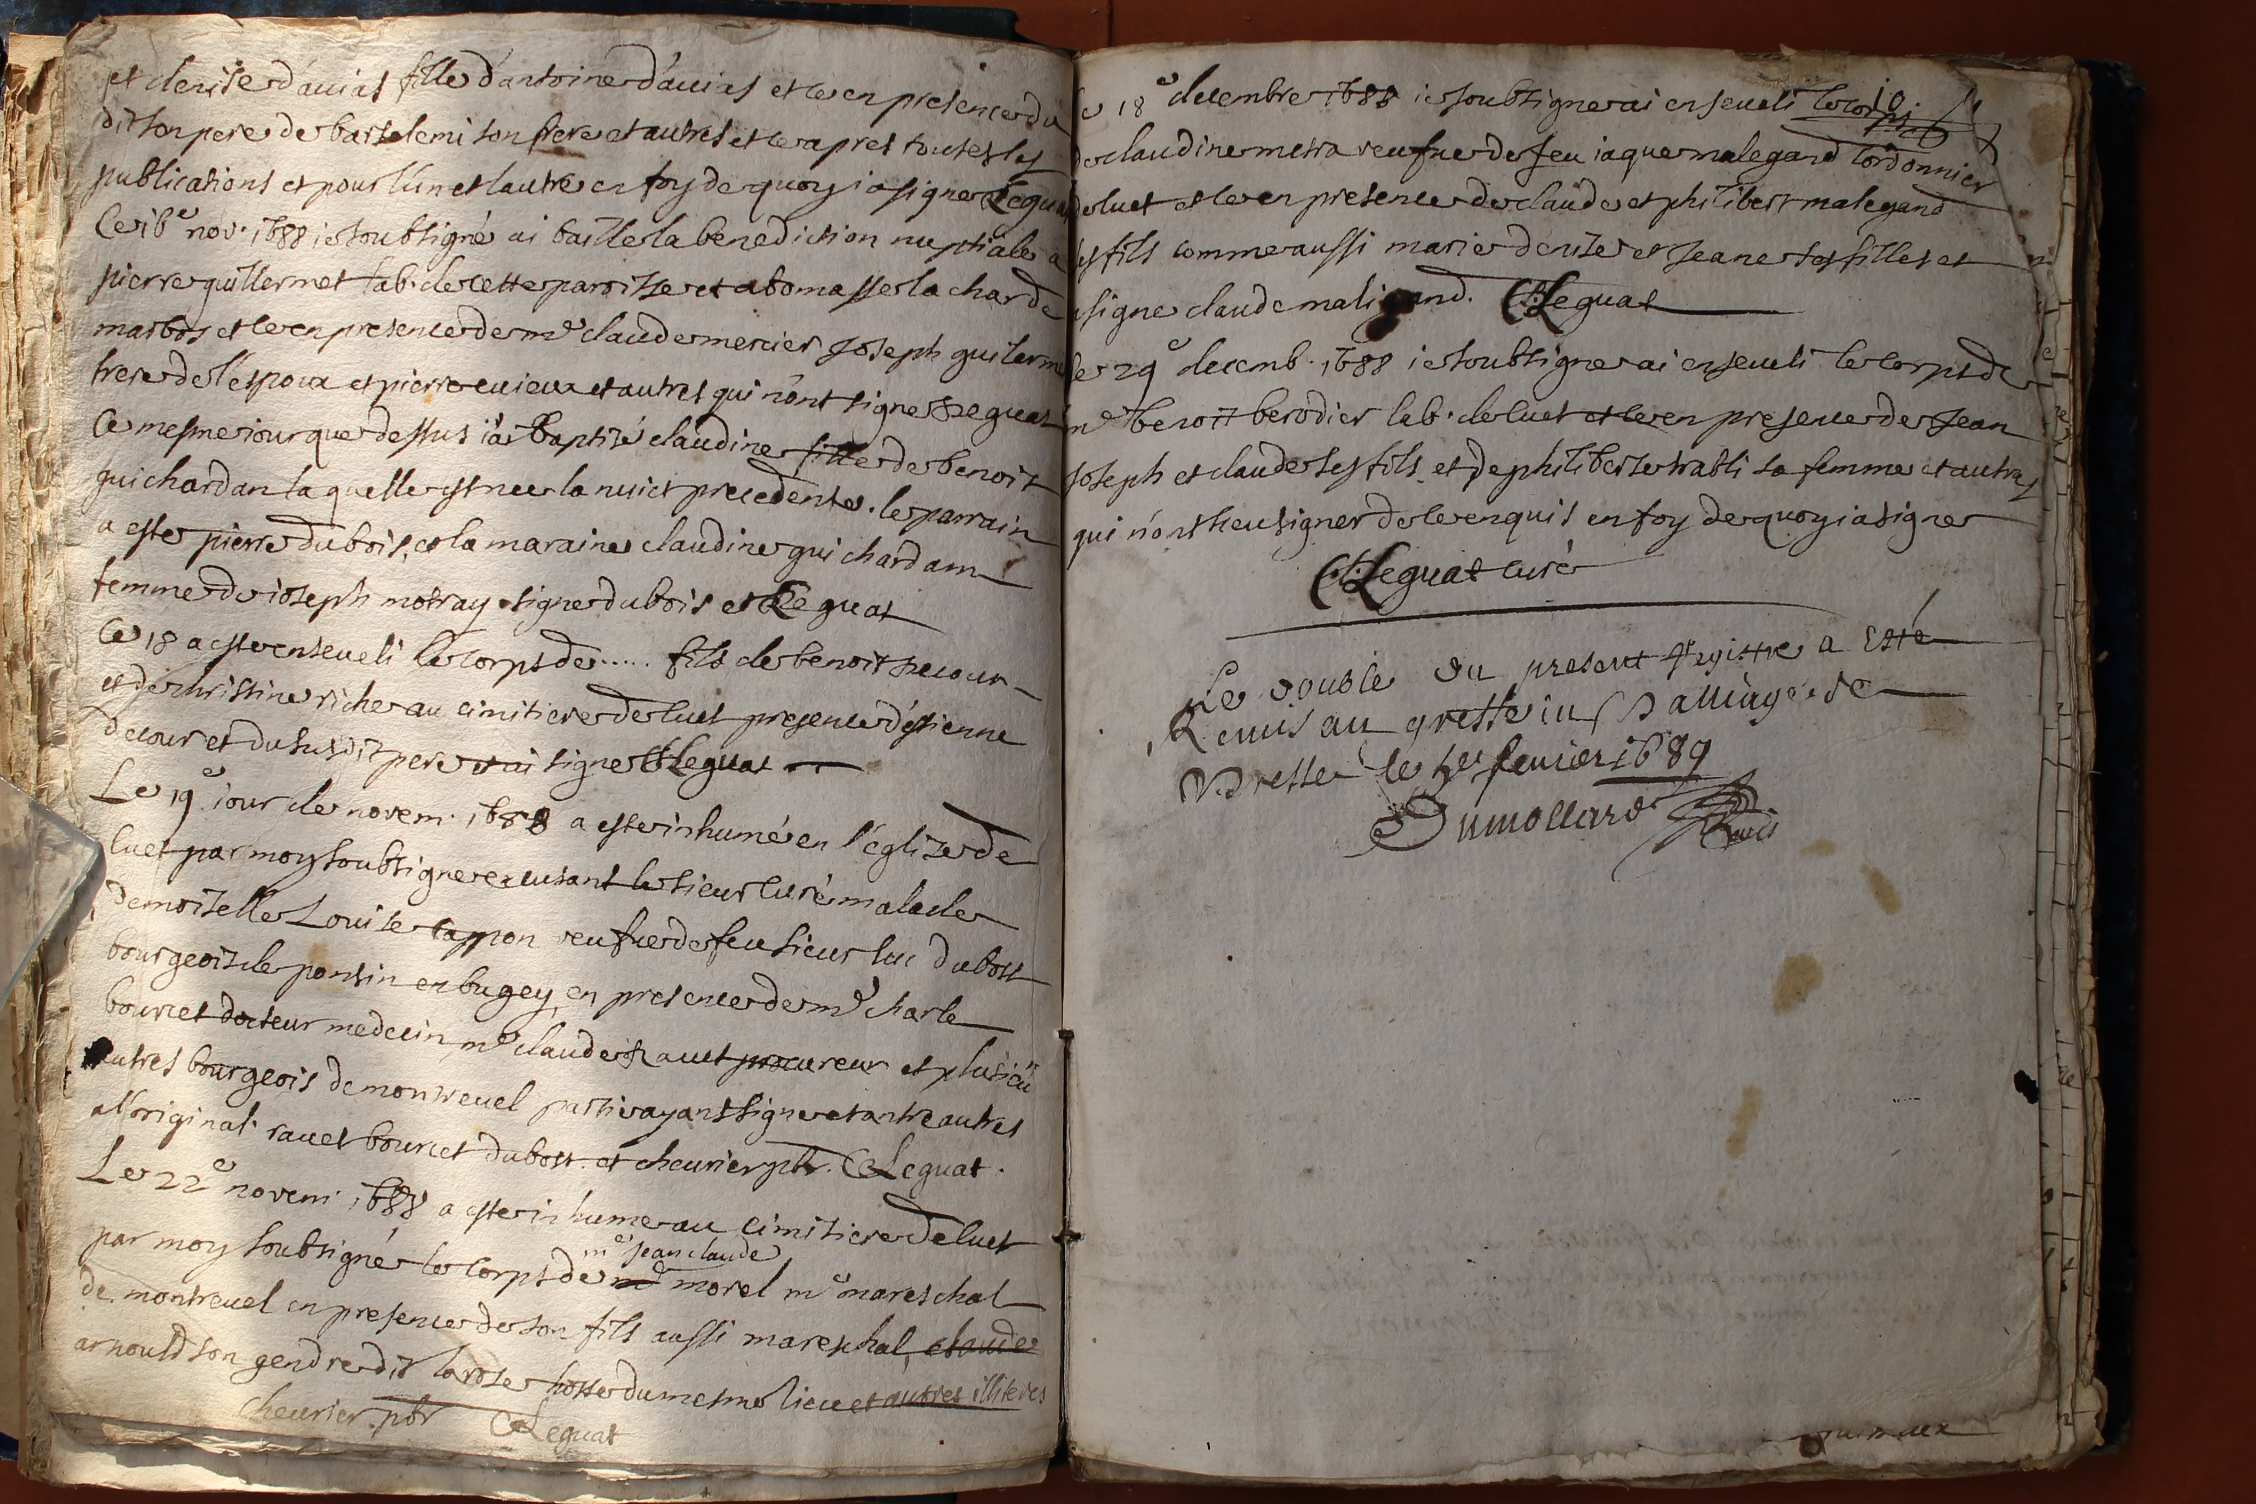 et denise d'auias fille d'antoine d'auias et ce en presence du
dit son pere de bartelemi son frere et autres et ce apres toutes les
publications et pour l'un et lautre en foy de quoy i'a signe Leguat
Ce 16e nov. 1688 ie soubsigné ai baille la benediction nuptiale a
pierre guillermet lab. de cette paroisse et a tomasse la charde
marbos et ce en presence de me claude mercier Joseph guilerme
frere de l'espoux et pierre cuieux et autres qui n'ont signe Leguat
Ce mesme iour que dessus i'ai baptisé claudine fille de benoit
guichardan laquelle est nee la nuict precedente. le parrain
a este pierre dubois, et la maraine claudine guichardan
femme de ioseph notray signe dubois et Leguat
Ce 18 a este enseueli le corps de ..... fils de benoit decour
et de christine riche au cimitiere de luet presence d'estienne
decour et du susdit pere et ai signe Leguat
Le 19e iour de novem. 1688 a este inhumé en l'église de
luet par moy soubsigne excusant le sieur curé malade
demoiselle Louise cappon veufue de feu sieur luc dubost
bourgeois de ponsin en bugey, en presence de me charle
bourcet docteur medecin, me claude rauet procureur et plusieurs
autres bourgeois de montreuel partie ayant signe et antre autres
a l'original rauet bourcet dubost et cheurier pbr. CLeguat.
Le 22e novem. 1688 a este inhume au cimitiere de luet
me Jean claude
par moy soubsigné le corps de morel me mareschal
de montreuel en presence de son fils aussi mareschal, claude
arnould son gendre dit la rose hoste du mesme lieu et autres illiteres
cheurier pbr CLeguat
10
Ce 18e decembre 1688 ie soubsigne ai enseueli le corps
de claudine metra veufue de feu iaque malegand cordonnier
de luet et ce en presence de claude et philibert malegand
ses fils comme aussi marie denise et Jeane ses filles et
a signe claude maligand. CLeguat
Le 29e decemb. 1688 ie soubsigne ai enseueli le corps de
me benoit berodier lab. de luet et ce en presence de Jean
Joseph et claude ses fils et de philiberte trabli sa femme et autres
qui n'ont sceu signer de ce enquis en foy de quoy i'a signe
CLeguat curé
Le double du present registre a esté
Remis au greffe du Balliage de
Bresse le fevrier 1689
Dumollard